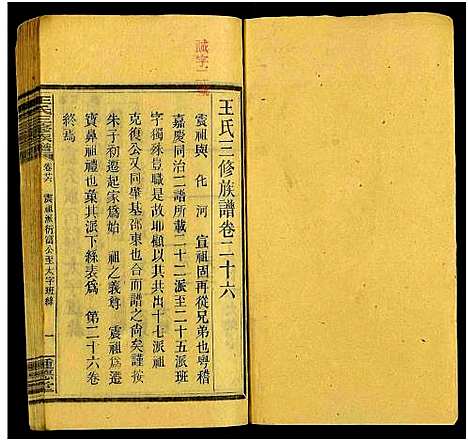 誠字二號
王氏三修族譜卷二十六
震祖與 化 河 宣祖固再從兄弟也粤稽
嘉慶同治二譜所載二十二派至二十五派班
字獨殊豈職是故耶顧其共出十七派祖
克復公又同肇基邵東也合而譜之尚矣謹按
朱子初遷起家為始 祖之義尊 震祖為遷
寶鼻祖禮也稾其派下綠表為 第二十六卷
終焉
王氏三修族譜 卷廿六 震祖派衍富公至大字班絲 一